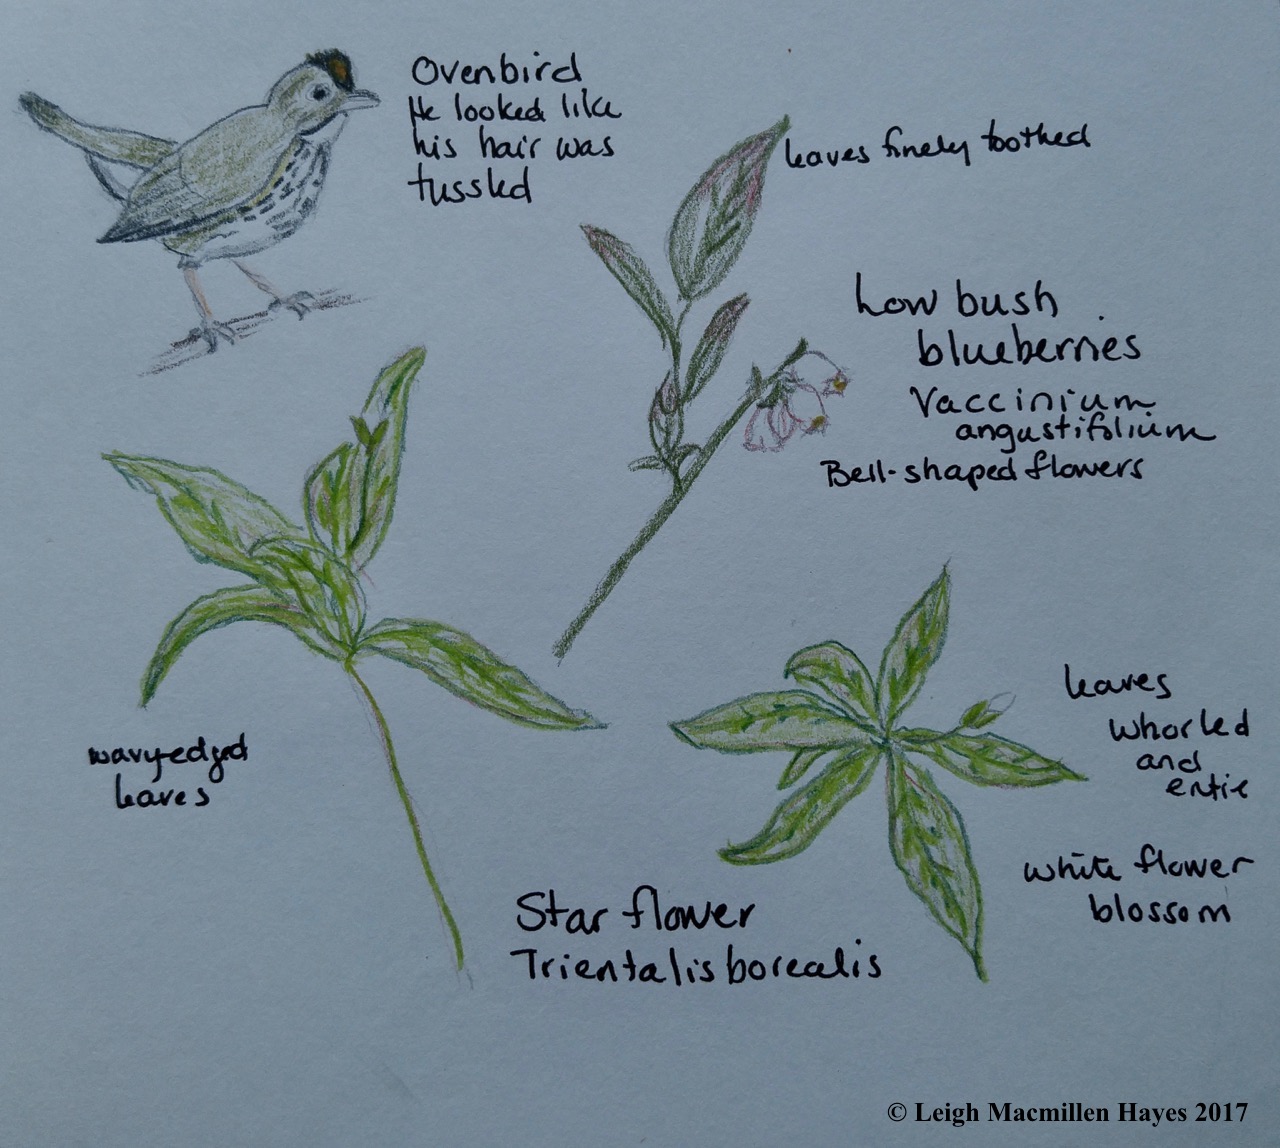 Ovenbird
He looked like
his hair was
tussled
leaves finely toothed
Low bush
blueberries
Vaccinium
angustifolium
Bell-shaped flowers
wavy-edged
leaves
leaves
whorled
and
entire
white flower
blossom
Star flower
Trientalis borealis
© Leigh Macmillen Hayes 2017